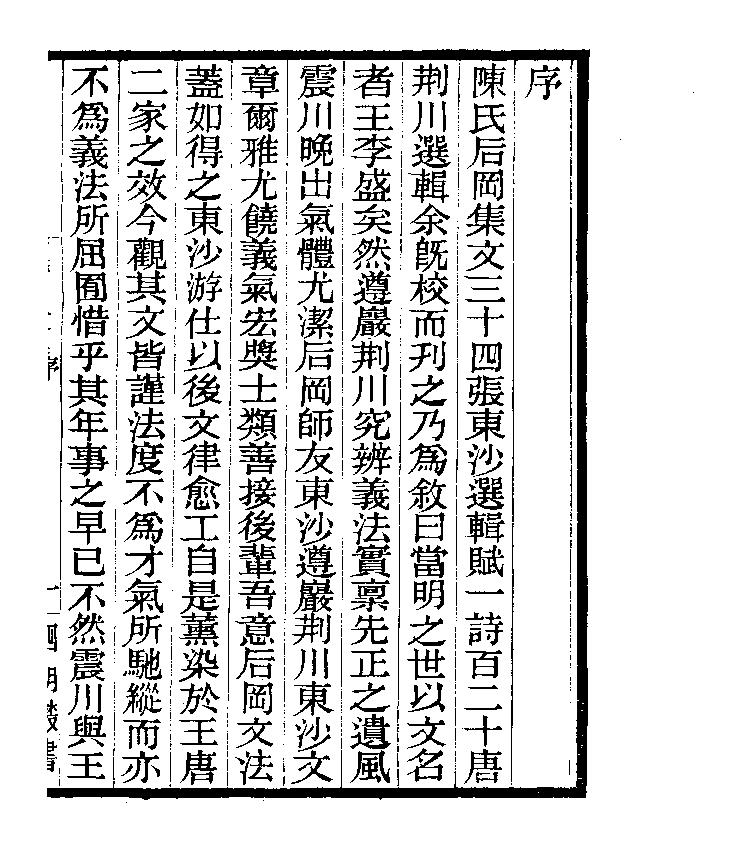 序
陳氏后岡集文三十四張東沙選輯賦一詩百二十唐
荆川選輯余旣校而刋之乃爲敘曰當明之世以文名
者王李盛矣然遵巖荆川究辨義法實稟先正之遺風
震川晚出氣體尤潔后岡師友東沙遵巖荆川東沙文
章爾雅尤饒義氣宏奬士類善接後輩吾意后岡文法
蓋如得之東沙游仕以後文律愈工自是薰染於王唐
二家之效今觀其文皆謹法度不爲才氣所馳縱而亦
不爲義法所屈囿惜乎其年事之早已不然震川與王
序 一 四明叢書